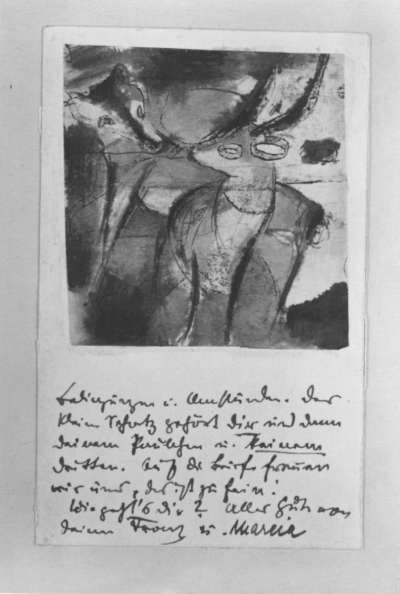 Bedingungen u. Umständen. Der
kleine Schatz gehört dir und dann
deinem Paulchen u. keinem
dritten. Auf die Briefe freuen
wir uns, das ist zu fein!
Wie geht's dir? Alles Gute von
deinem Franz u. Maria